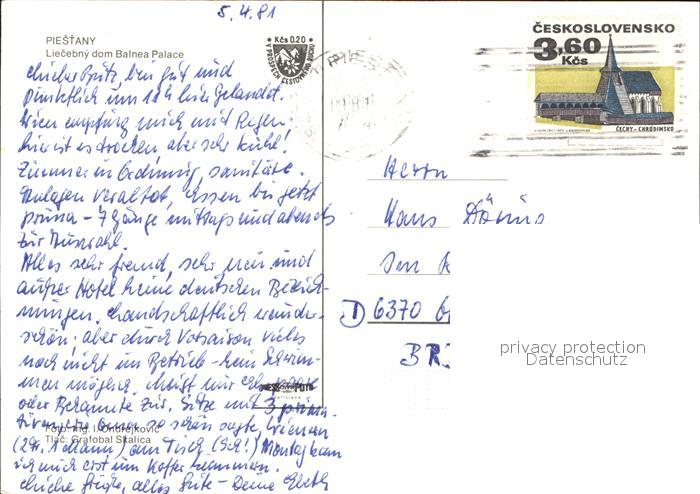 5.4.81
PIEŠŤANY
Liečebný dom Balnea Palace
Kčs 0.20
ČESKOSLOVENSKO
3,60
Kčs
ČECHY - CHRUDIMSKO
bin gut und
pünktlich um 18h hier gelandet.
Wien empfing mich mit Regen.
hier ist es trocken aber sehr kühl!
Zimmer in Ordnung, sanitäre.
Anlagen veraltet, Essen bis jetzt
prima - 7 Gänge mittags und abends
zur Auswahl.
Alles sehr fremd, sehr neu und
außer Hotel keine deutschen Bezeich-
nungen. Landschaftlich wunder-
schön; aber durch Vorsaison vieles
noch nicht in Betrieb - kein Schwim-
men möglich.
oder Bekannte zur. Sitze mit 3
so schön sagte, Wienern
(2 Fr. 1 Mann) am Tisch Montag kann
ich mich erst um Koffer kümmern.
Liebe Grüße, alles Gute - Deine
Foto: Ing. I. Ondrejkovič
Tlač: Grafobal Skalica
Herrn
Hans
Im
D 6370
privacy protection
Datenschutz